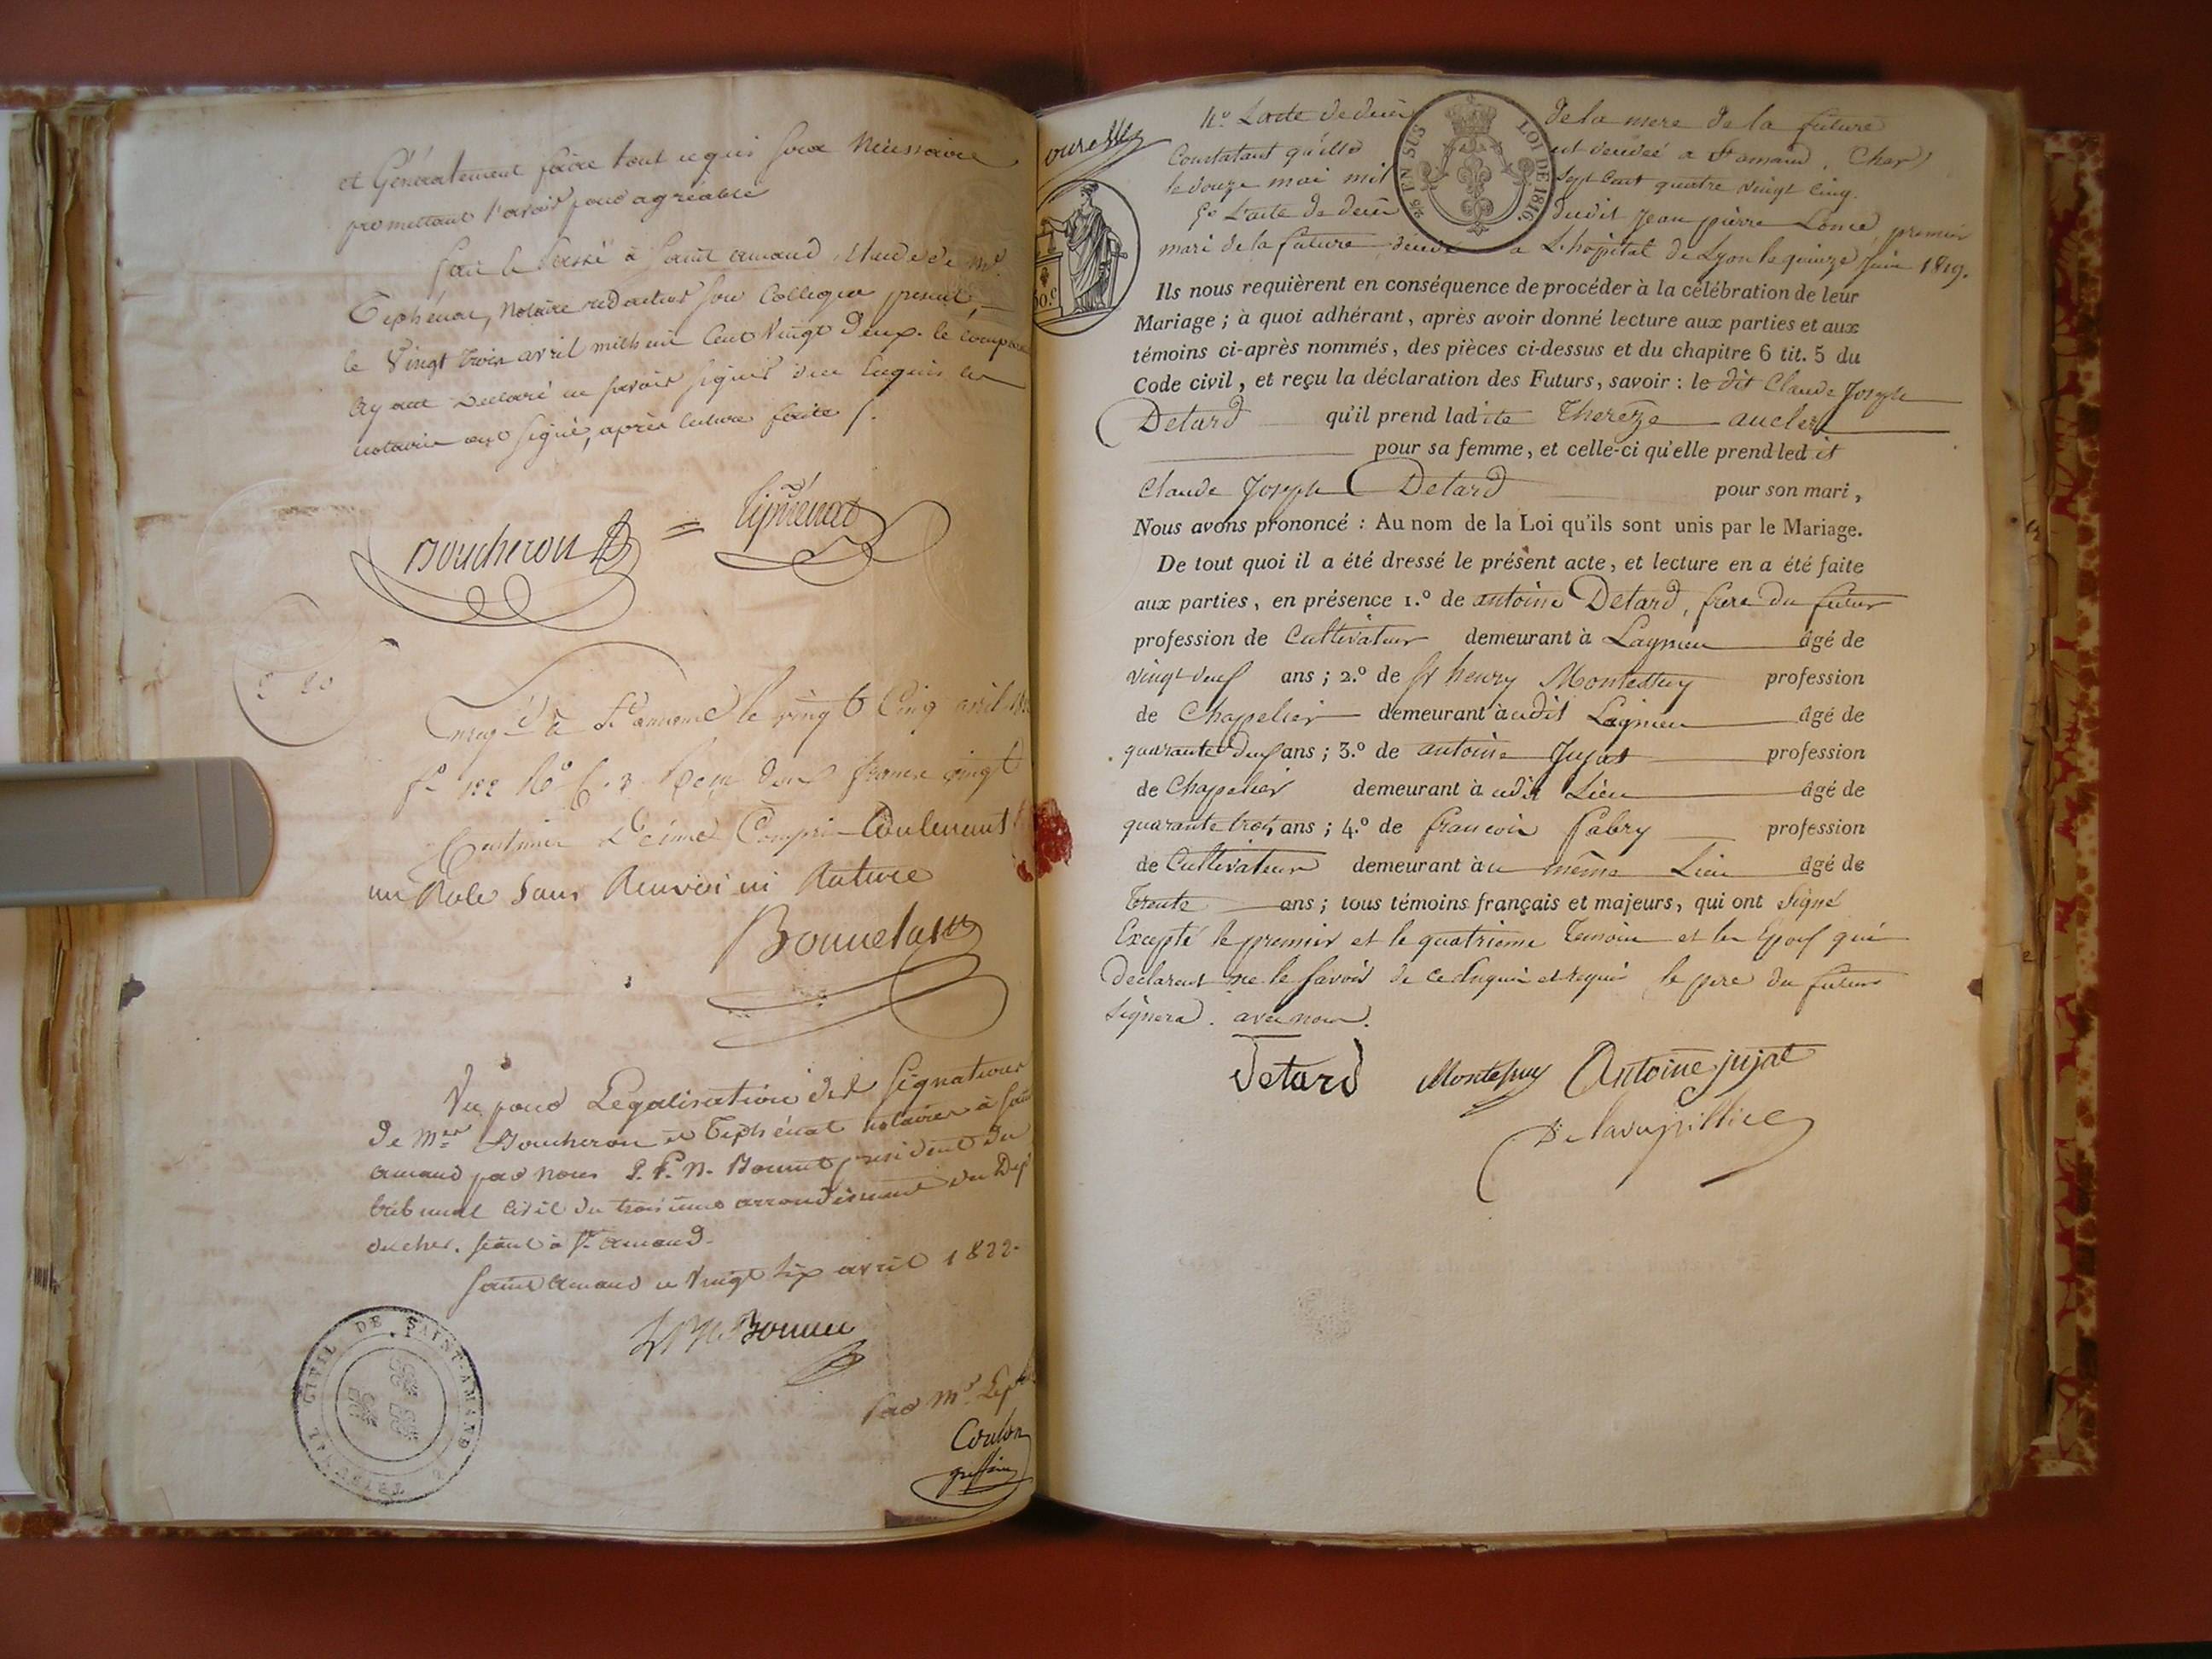 et Généralement faire tout ce qui sera Nécessaire
promettant l'avoir pour agréable
fait & Passé à Saint amand Etude de Me
Tiphénat, Notaire rédacteur son Collegue présent,
le Vingt Trois avril mil huit Cent Vingt Deux. le comp
ayant Declaré ne savoir signer de ce Enquis les
notaires ont signé, après lecture faite /.
Boucheron = Tiphénat
Enregé à St amand le vingt Cinq avril
fo 122 Ro C. 3 Reçu deux francs vingt
Centimes décime Compris Contenant
un Role Sans Renvoi ni Rature
Bonnelat
Vu pour Légalisation des signatures
De Mes Boucheron et Tiphénat notaires à Saint
amand par nous Bonnet président du
tribunal Civil du troisieme arrondissement du Dépt
du cher. séant à St amand.
Saint Amand ce Vingt Six avril 1822.
Bonnet
TRIBUNAL CIVIL DE SAINT-AMAND
Par Mr
Coulon
greffier
4o L'acte de decès de la mere de la future
Constatant qu'elle est decedée a St amand, Cher
le douze mai mil sept Cent quatre vingt cinq.
5o L'acte de decès dudit Jean pierre premier
mari de la future decedé a L'hopital de Lyon le quinze Juin 1819.
2/5 EN SUS LOI DE 1816.
Ils nous requièrent en conséquence de procéder à la célébration de leur
Mariage ; à quoi adhérant, après avoir donné lecture aux parties et aux
témoins ci-après nommés, des pièces ci-dessus et du chapitre 6 tit. 5 du
Code civil, et reçu la déclaration des Futurs, savoir : le dit Claude Joseph
Detard qu'il prend ladite Thereze aucler
pour sa femme, et celle-ci qu'elle prend ledit
Claude Joseph Detard pour son mari,
Nous avons prononcé : Au nom de la Loi qu'ils sont unis par le Mariage.
De tout quoi il a été dressé le présent acte, et lecture en a été faite
aux parties, en présence 1.º de antoine Detard, frere du futur
profession de Cultivateur demeurant à Lagnieu âgé de
vingt deux ans ; 2.º de Sr henry Montessuy profession
de Chapelier demeurant audit Lagnieu âgé de
quarante deux ans ; 3.º de antoine Jujat profession
de Chapelier demeurant à udit Lieu âgé de
quarante trois ans ; 4.º de francois Fabry profession
de Cultivateur demeurant au même Lieu âgé de
Trente ans ; tous témoins français et majeurs, qui ont signé
Excepté le premier et le quatrieme Temoin et les Epoux qui
declarent ne le savoir de ce Enquis et requis le pere du futur
signera avec nous.
Detard Montessuy Antoine jujat